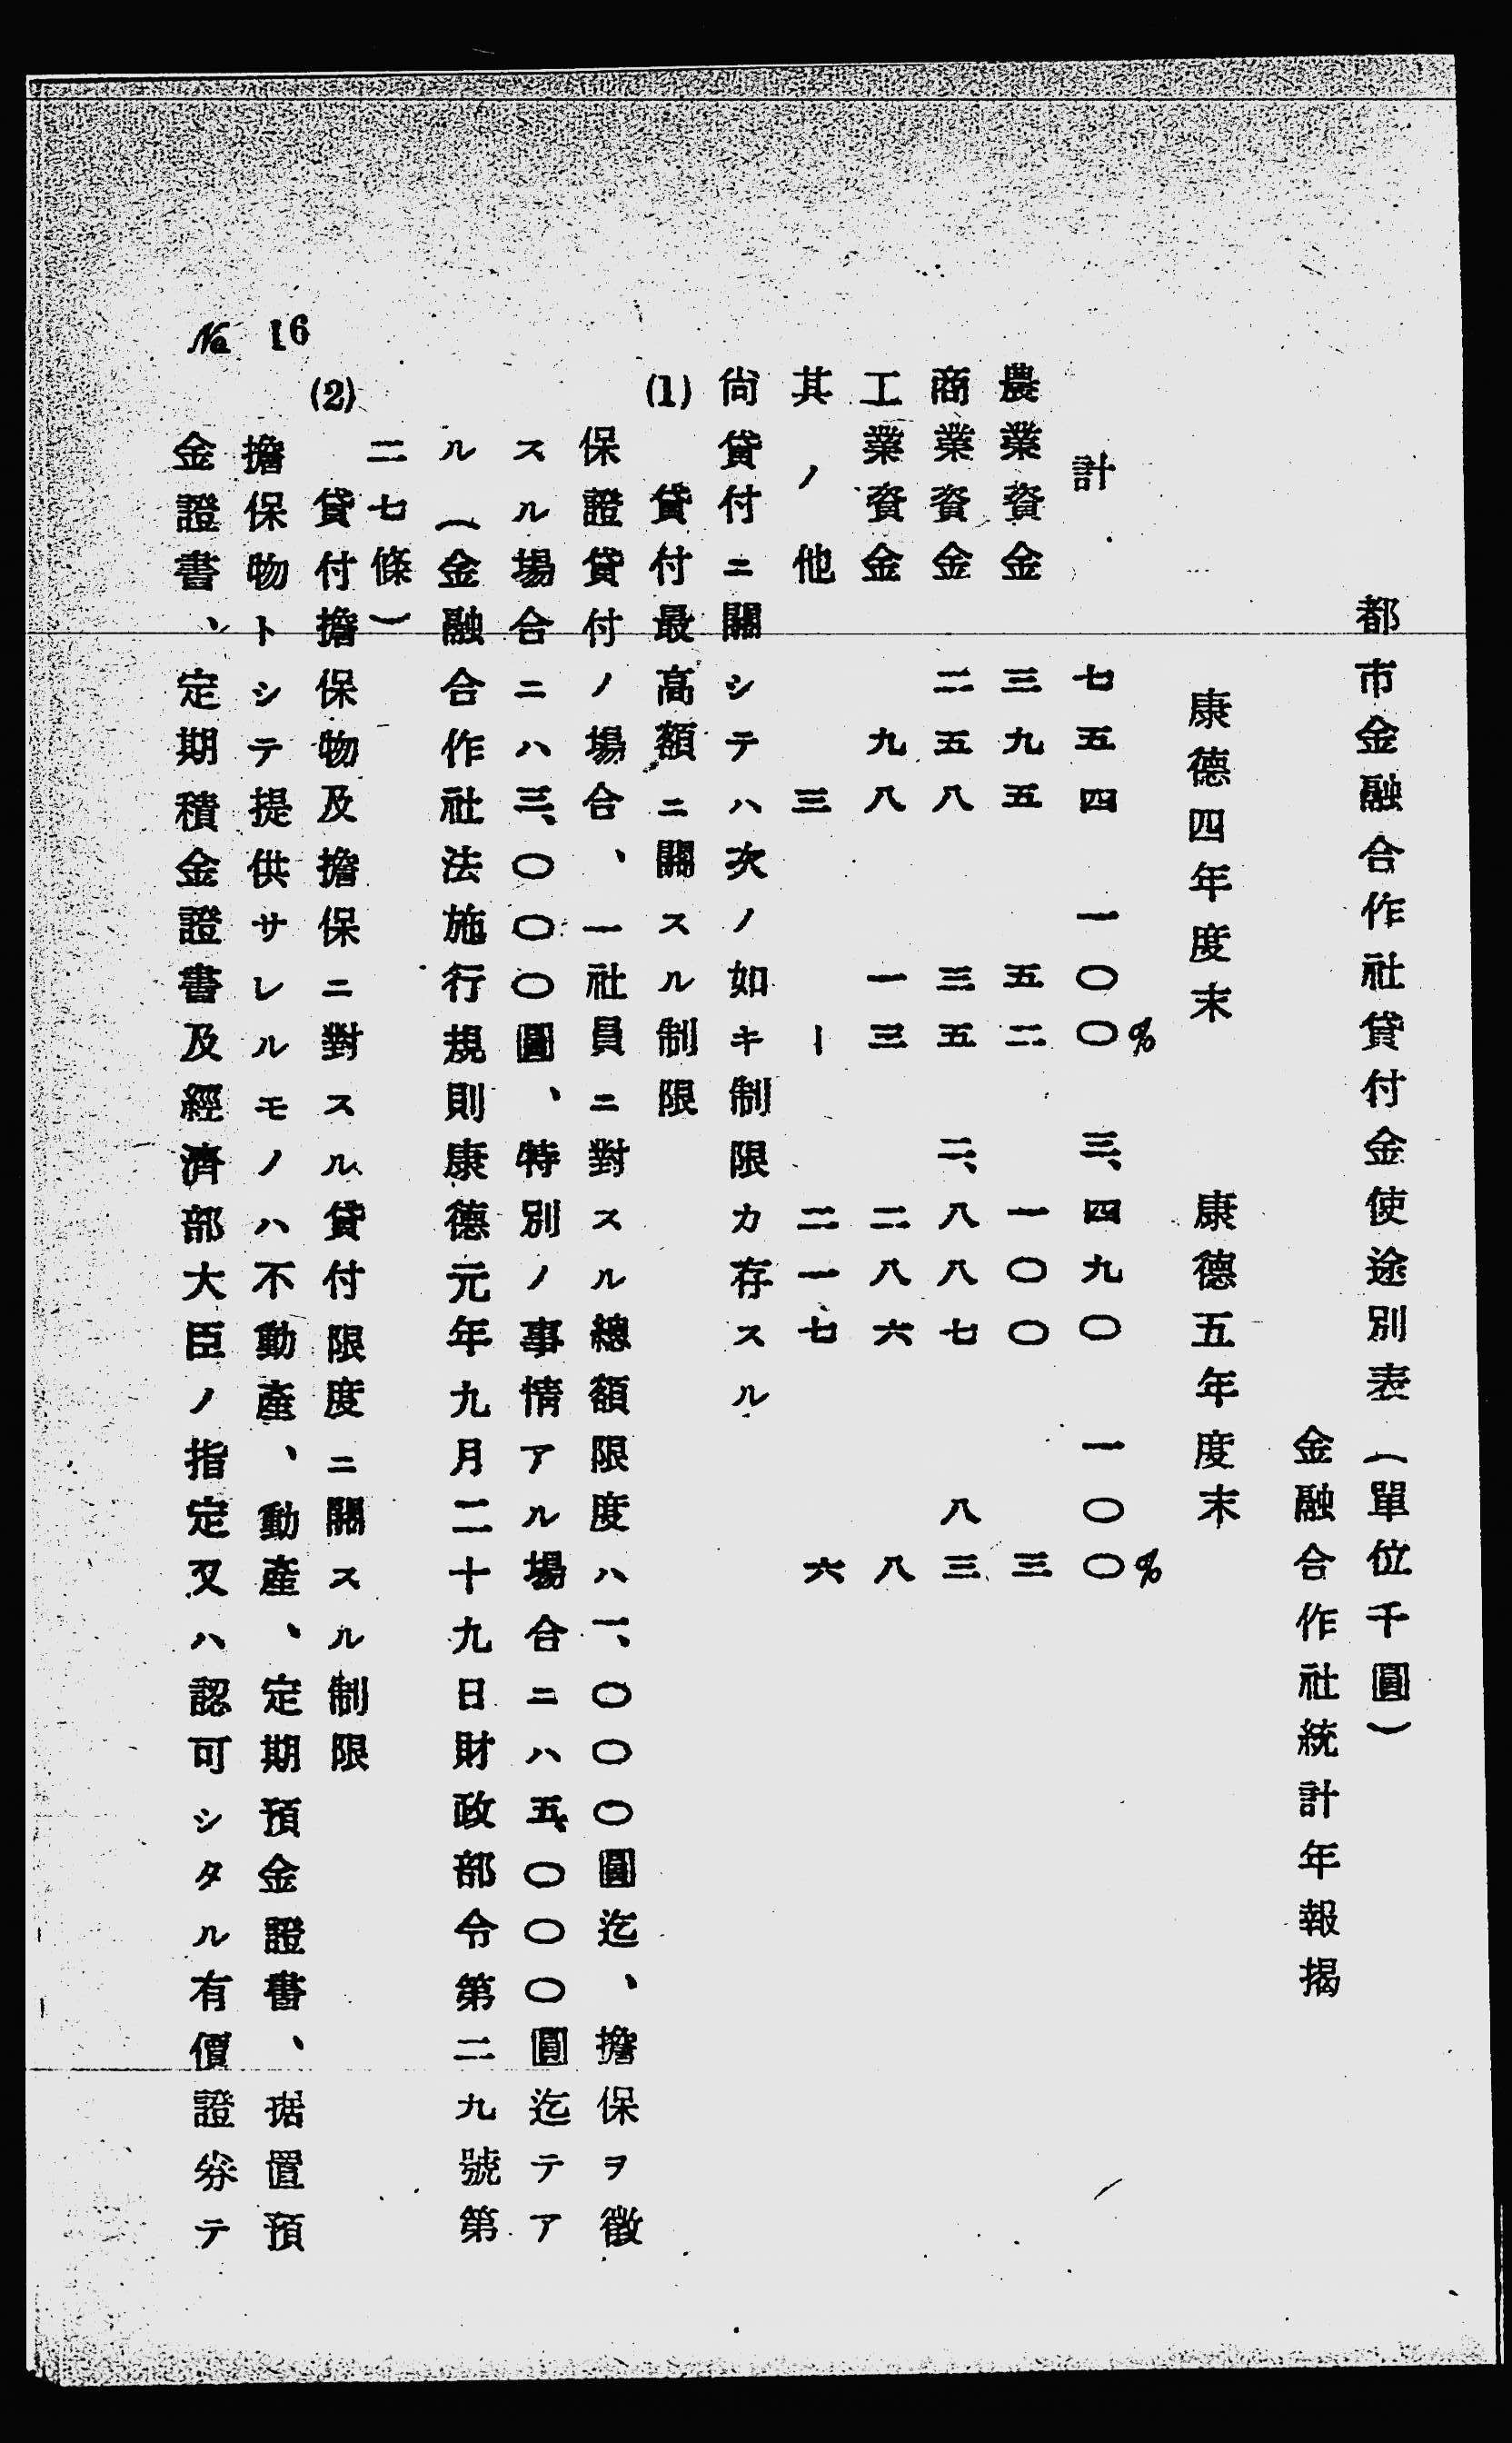 都市金融合作社貸付金使途別表(單位千圓)
金融合作社統計年報揭
康德四年度末 康德五年度末
計 七五四 一〇〇% 三、四九〇 一〇〇%
農業資金 三九五 五二 一〇〇 三
商業資金 二五八 三五 二、八八七 八三
工業資金 九八 一三 二八六 八
其ノ他 三 ー 二一七 六
尙貸付ニ關シテハ次ノ如キ制限カ存スル
(1) 貸付最高額ニ關スル制限
保證貸付ノ場合、一社員ニ對スル總額限度ハ一、〇〇〇圓迄、擔保ヲ徵
スル場合ニハ三、〇〇〇圓、特別ノ事情アル場合ニハ五、〇〇〇圓迄テア
ル(金融合作社法施行規則康德元年九月二十九日財政部令第二九號第
二七條)
(2) 貸付擔保物及擔保ニ對スル貸付限度ニ關スル制限
擔保物トシテ提供サレルモノハ不動產、動產、定期預金證書、据置預
金證書、定期積金證書及經濟部大臣ノ指定又ハ認可シタル有價證券テ
№ 16